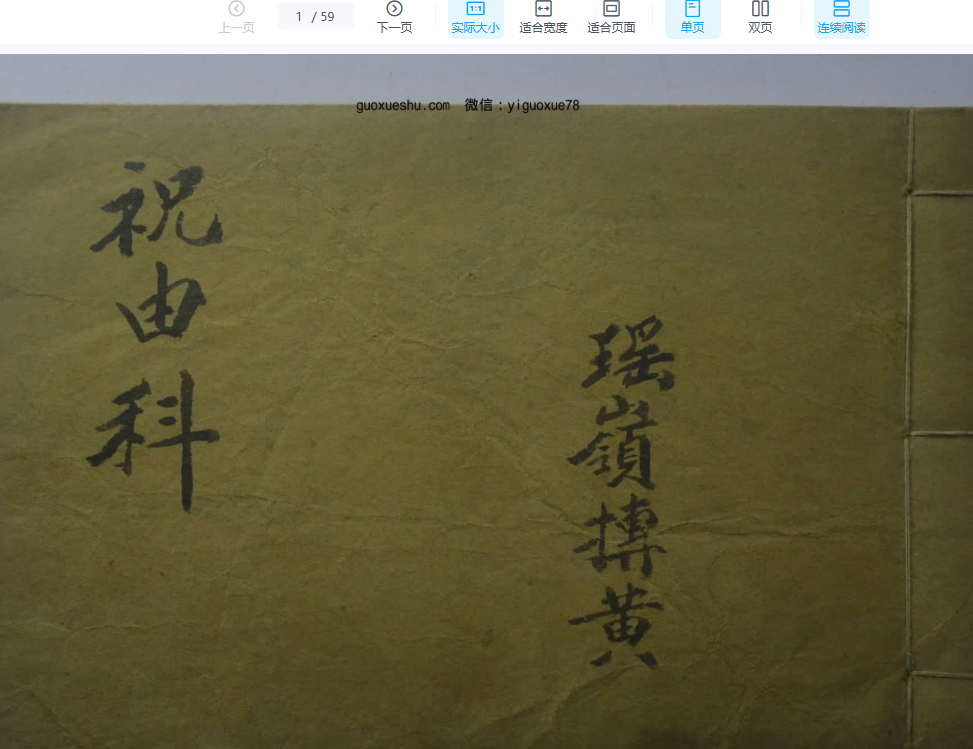 上一页
1 / 59
下一页
1:1
实际大小
适合宽度
适合页面
单页
双页
连续阅读
guoxueshu.com 微信：yiguoxue78
祝由科
瑶嶺搏黄